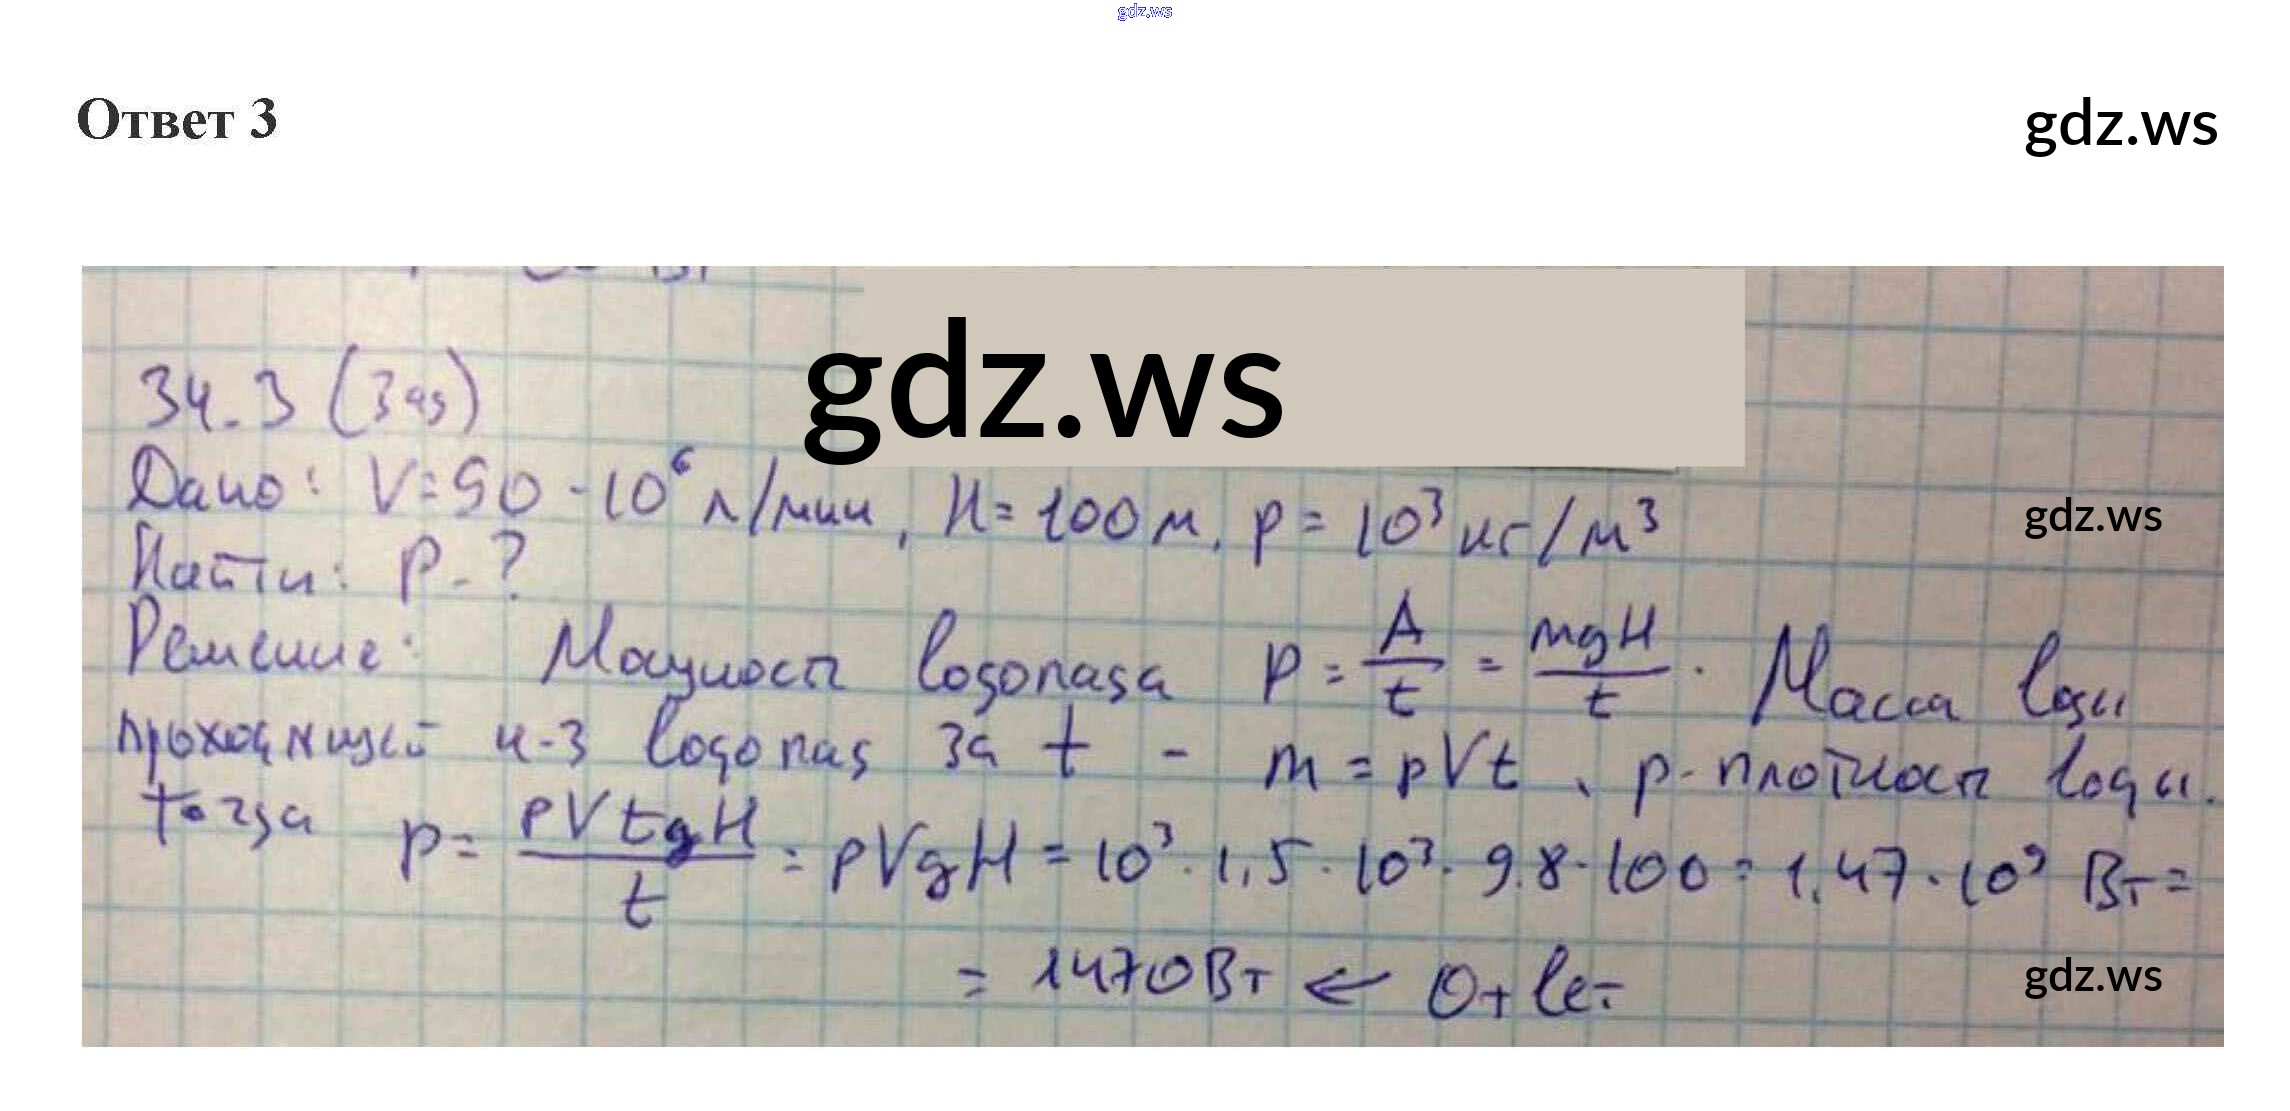 gdz.ws
Ответ 3
gdz.ws
gdz.ws
34.3 (Зад)
Дано: V=90·10⁶ л/мин, H=100м, ρ=10³ кг/м³
gdz.ws
Найти: P-?
Решение: Мощность водопада P = A/t = mgH/t. Масса воды
проходящей ч-з водопад за t - m=ρVt, ρ-плотность воды.
Тогда P = ρVtgH/t = ρVgH = 10³·1,5·10³·9.8·100 = 1.47·10⁹ Вт =
= 1470Вт ← Ответ
gdz.ws